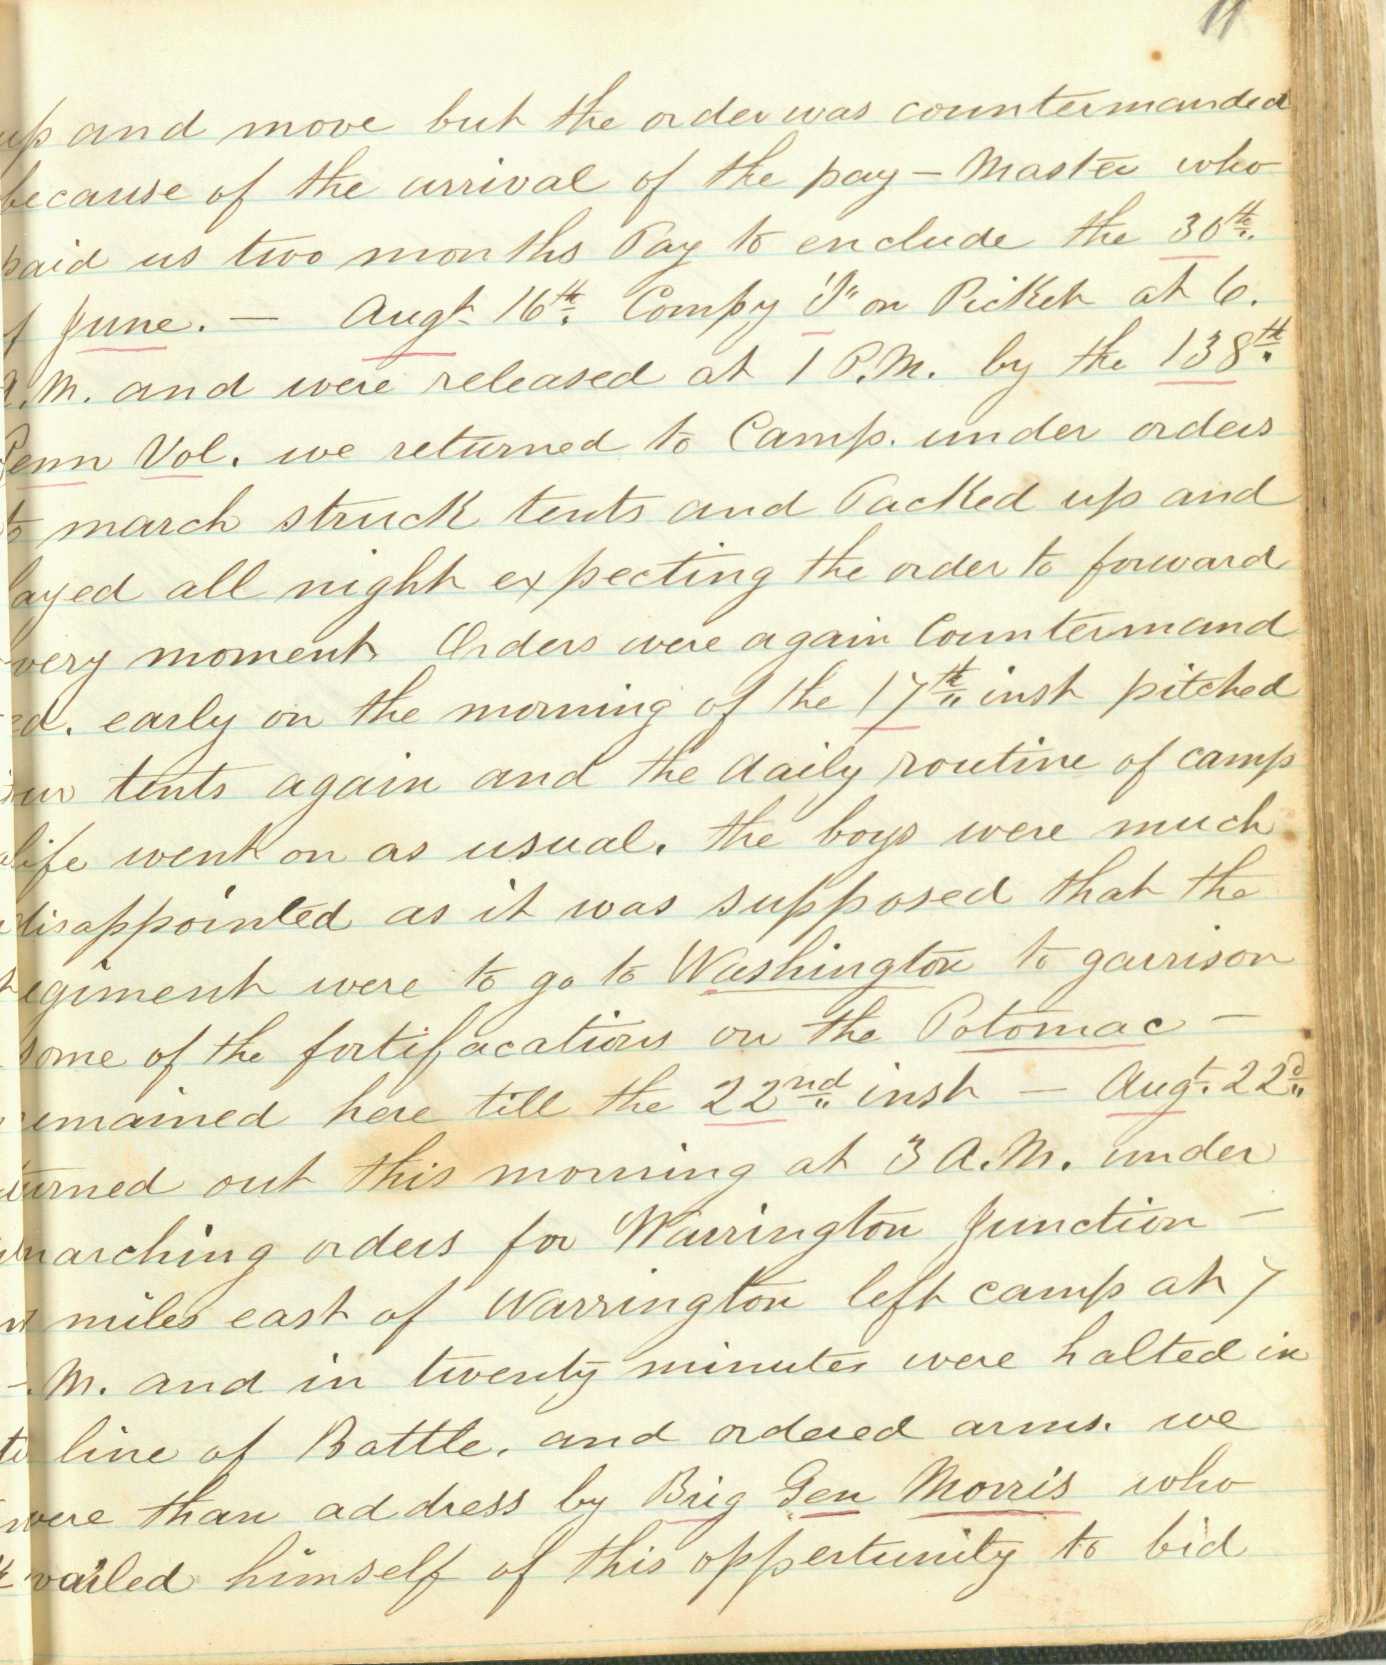 11
up and move but the order was countermanded
because of the arrival of the pay-Master who
paid us two months Pay to enclude the 30th.
of June. — Augt 16th. Compy "I" on Picket at 6.
A.M. and were released at 1 P.M. by the 138th.
Penn Vol. we returned to Camp. under orders
to march struck tents and Packed up and
layed all night expecting the order to forward
every moment Orders were again Countermand
ed. early on the morning of the 17th inst pitched
our tents again and the daily routine of camp
life went on as usual. the boys were much
disappointed as it was supposed that the
regiment were to go to Washington to garrison
some of the fortifacations on the Potomac —
remained here till the 22nd inst — Augt. 22d
turned out this morning at 3 A.M. under
marching orders for Warrington Junction —
miles east of Warrington left camp at 7
M. and in twenty minutes were halted in
line of Battle. and ordered arms. we
were than address by Brig Gen Morris who
availed himself of this oppertunity to bid